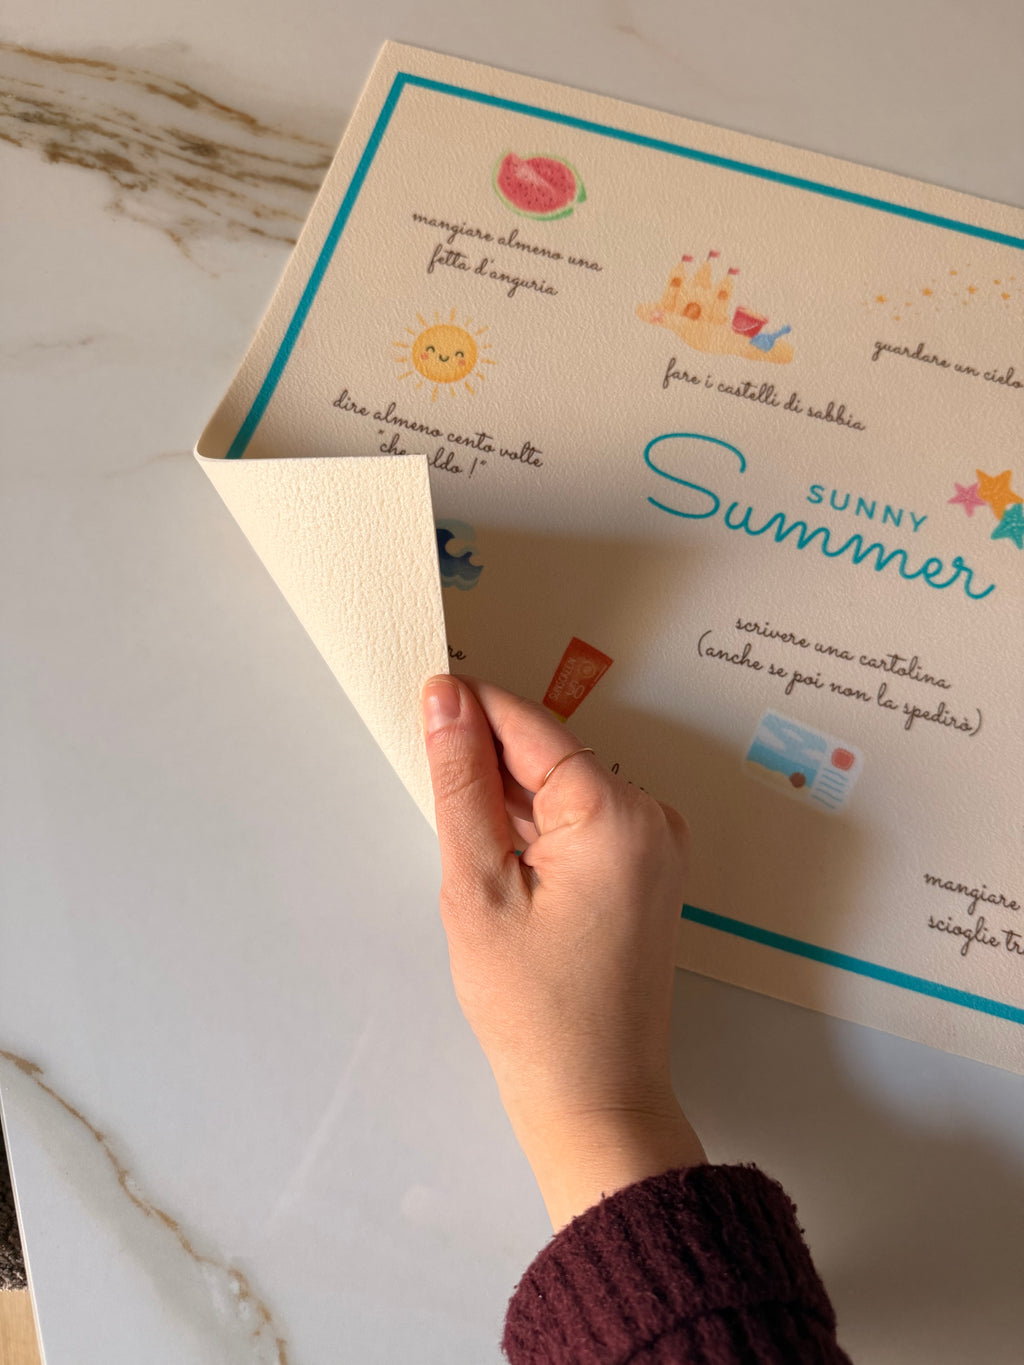 mangiare almeno una
fetta d'anguria
fare i castelli di sabbia
guardare un cielo
dire almeno cento volte
"che ldo !"
SUNNY
Summer
re
scrivere una cartolina
(anche se poi non la spedirò)
SUNSCREEN
50
mangiare
scioglie